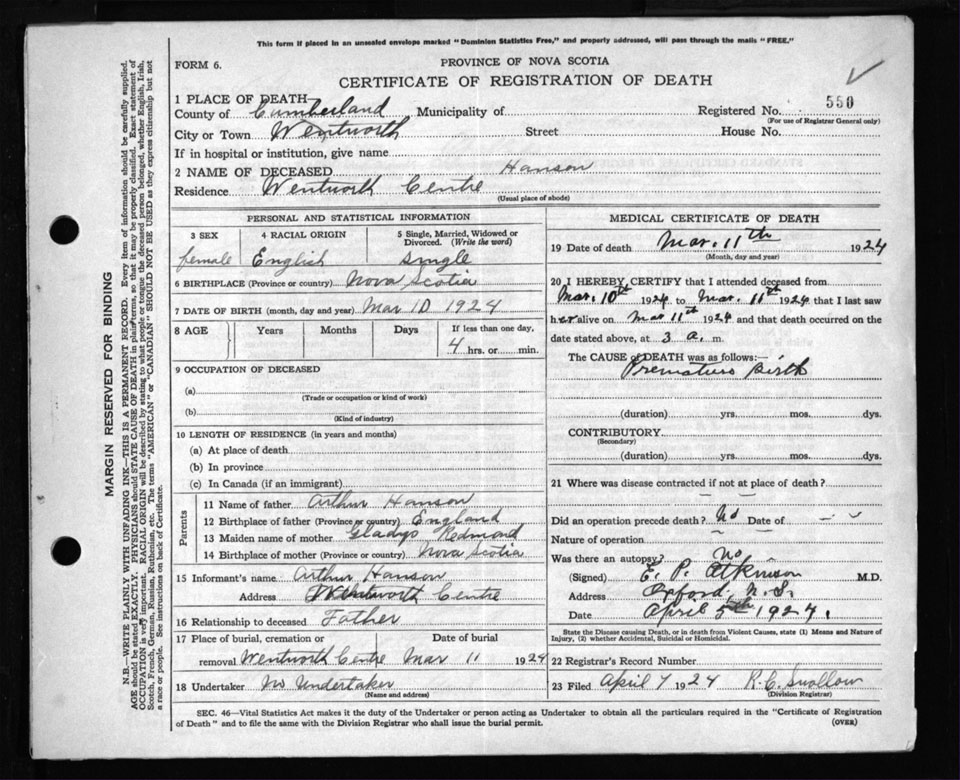 This form if placed in an unsealed envelope marked "Dominion Statistics Free," and properly addressed, will pass through the mails "FREE."
FORM 6.
PROVINCE OF NOVA SCOTIA
CERTIFICATE OF REGISTRATION OF DEATH
1 PLACE OF DEATH
County of Cumberland Municipality of Registered No. 550
(For use of Registrar General only)
City or Town Wentworth Street House No.
If in hospital or institution, give name
2 NAME OF DECEASED Hanson
Residence Wentworth Centre
(Usual place of abode)
PERSONAL AND STATISTICAL INFORMATION
3 SEX 4 RACIAL ORIGIN 5 Single, Married, Widowed or Divorced. (Write the word)
female English single
6 BIRTHPLACE (Province or country) Nova Scotia
7 DATE OF BIRTH (month, day and year) Mar 10 1924
8 AGE Years Months Days If less than one day,
4 hrs. or min.
9 OCCUPATION OF DECEASED
(a)
(Trade or occupation or kind of work)
(b)
(Kind of industry)
10 LENGTH OF RESIDENCE (in years and months)
(a) At place of death
(b) In province
(c) In Canada (if an immigrant)
Parents
11 Name of father Arthur Hanson
12 Birthplace of father (Province or country) England
13 Maiden name of mother Gladys Redmond
14 Birthplace of mother (Province or country) Nova Scotia
15 Informant's name Arthur Hanson
Address Wentworth Centre
16 Relationship to deceased Father
17 Place of burial, cremation or Date of burial
removal Wentworth Centre Mar 11 1924
18 Undertaker No Undertaker
(Name and address)
MEDICAL CERTIFICATE OF DEATH
19 Date of death Mar. 11th 1924
(Month, day and year)
20 I HEREBY CERTIFY that I attended deceased from
Mar. 10th 1924 to Mar. 11th 1924 that I last saw
her alive on Mar 11th 1924 and that death occurred on the
date stated above, at 3 a. m.
The CAUSE of DEATH was as follows:—
Premature birth
(duration) yrs. mos. dys.
CONTRIBUTORY
(Secondary)
(duration) yrs. mos. dys.
21 Where was disease contracted if not at place of death?
Did an operation precede death? No Date of
Nature of operation
Was there an autopsy? No
(Signed) E. P. Atkinson M.D.
Address Oxford, N.S.
Date April 5th 1924.
State the Disease causing Death, or in death from Violent Causes, state (1) Means and Nature of
Injury, (2) whether Accidental, Suicidal or Homicidal.
22 Registrar's Record Number
23 Filed April 7 1924 R. C. Swallow
(Division Registrar)
SEC. 46—Vital Statistics Act makes it the duty of the Undertaker or person acting as Undertaker to obtain all the particulars required in the "Certificate of Registration
of Death" and to file the same with the Division Registrar who shall issue the burial permit. (OVER)
MARGIN RESERVED FOR BINDING
N.B.—WRITE PLAINLY WITH UNFADING INK—THIS IS A PERMANENT RECORD. Every item of information should be carefully supplied.
AGE should be stated EXACTLY. PHYSICIANS should STATE CAUSE OF DEATH in plain terms, so that it may be properly classified. Exact statement of
OCCUPATION is very important. RACIAL ORIGIN will be described by stating to what people or tongue the deceased person belonged, whether English, Irish,
Scotch, French, German, Russian, Ruthenian, etc. The terms "AMERICAN" or "CANADIAN" SHOULD NOT BE USED as they express citizenship but not
a race or people. See instructions on back of Certificate.